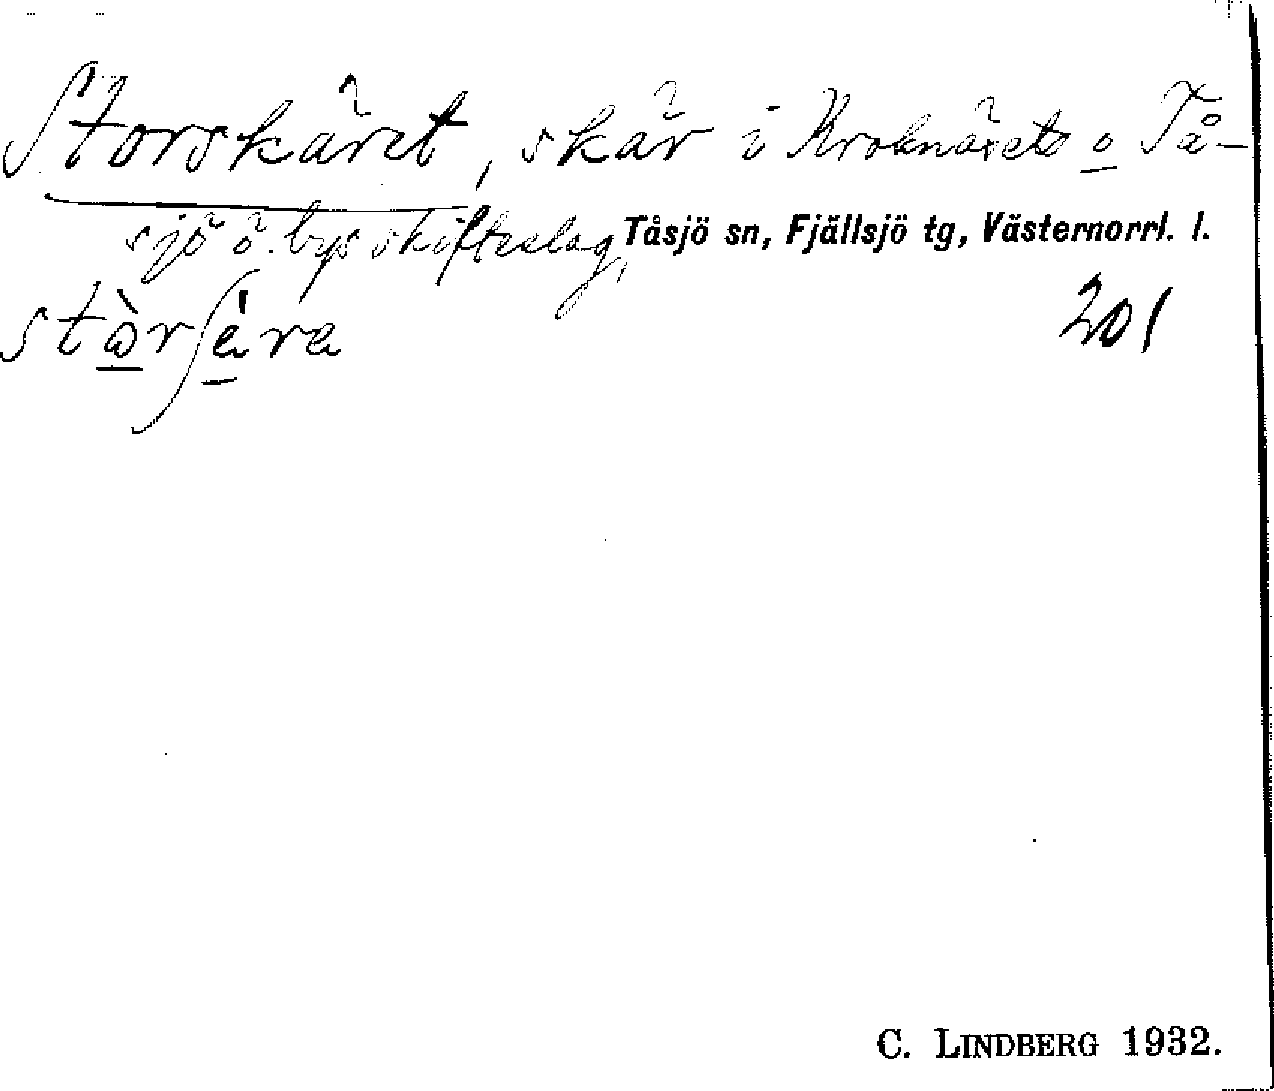 Storskäret, skär i Kroknäsets o Tå-
sjö ö. bys skifteslag, Tåsjö sn, Fjällsjö tg, Västernorrl. l.
201
C. LINDBERG 1932.